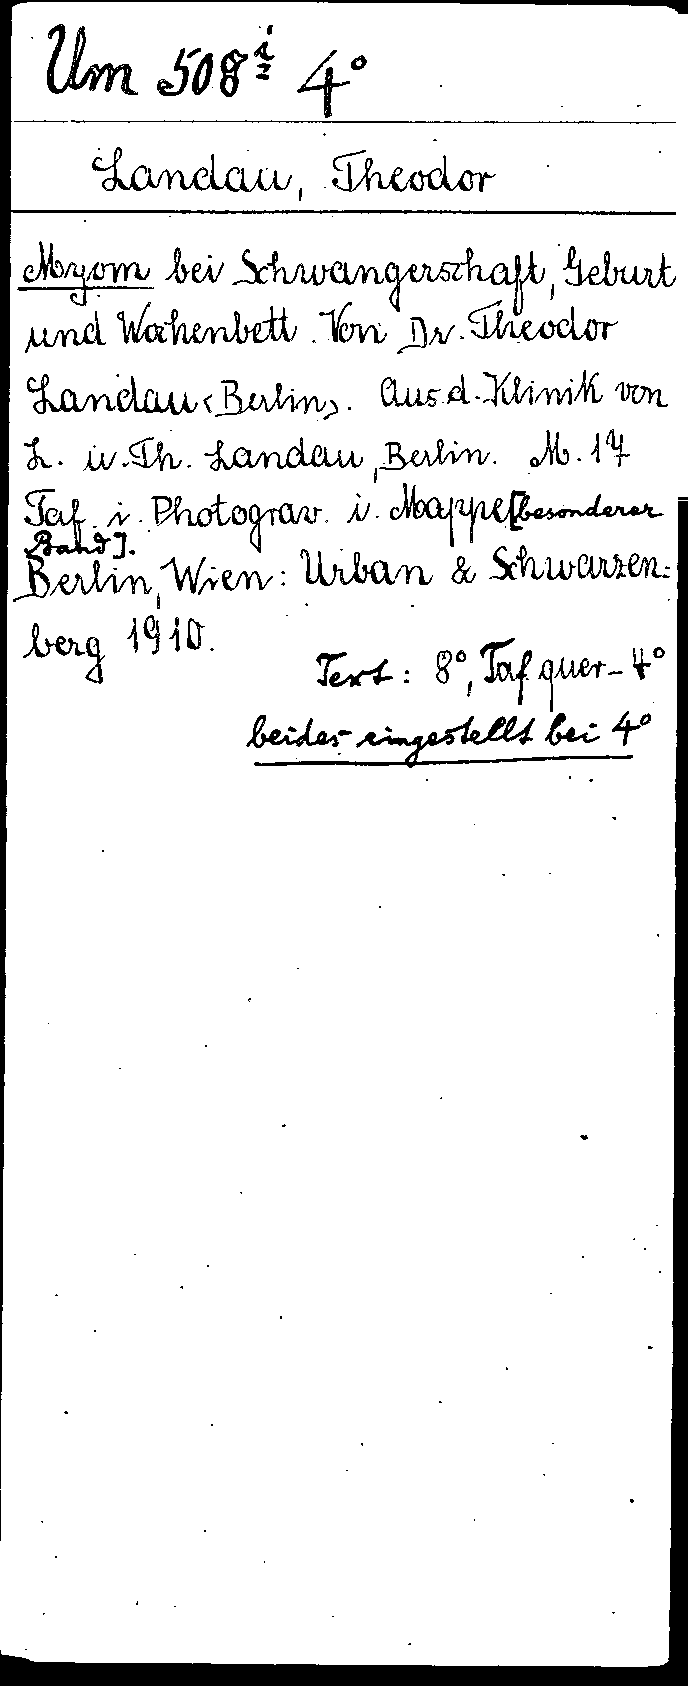 Um 508 i/z 4°
Landau, Theodor
Myom bei Schwangerschaft, Geburt
und Wochenbett. Von Dr. Theodor
Landau <Berlin>. Aus d. Klinik von
L. u. Th. Landau, Berlin. M. 17
Taf. i. Photograv. i. Mappe [besonderer
Band].
Berlin, Wien: Urban & Schwarzen=
berg 1910.
Text: 8°, Taf quer-4°
beides eingestellt bei 4°